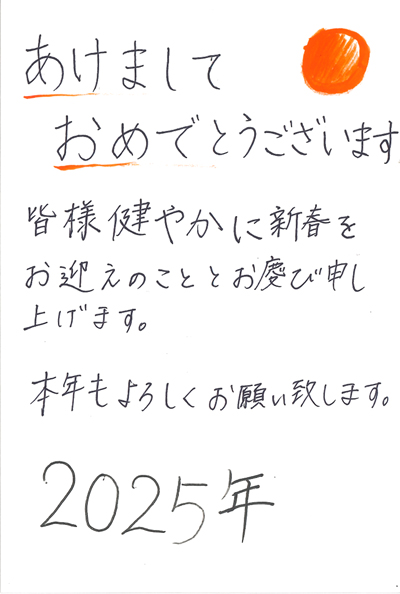 あけまして
おめでとうございます
皆様健やかに新春を
お迎えのこととお慶び申し
上げます。
本年もよろしくお願い致します。
2025年